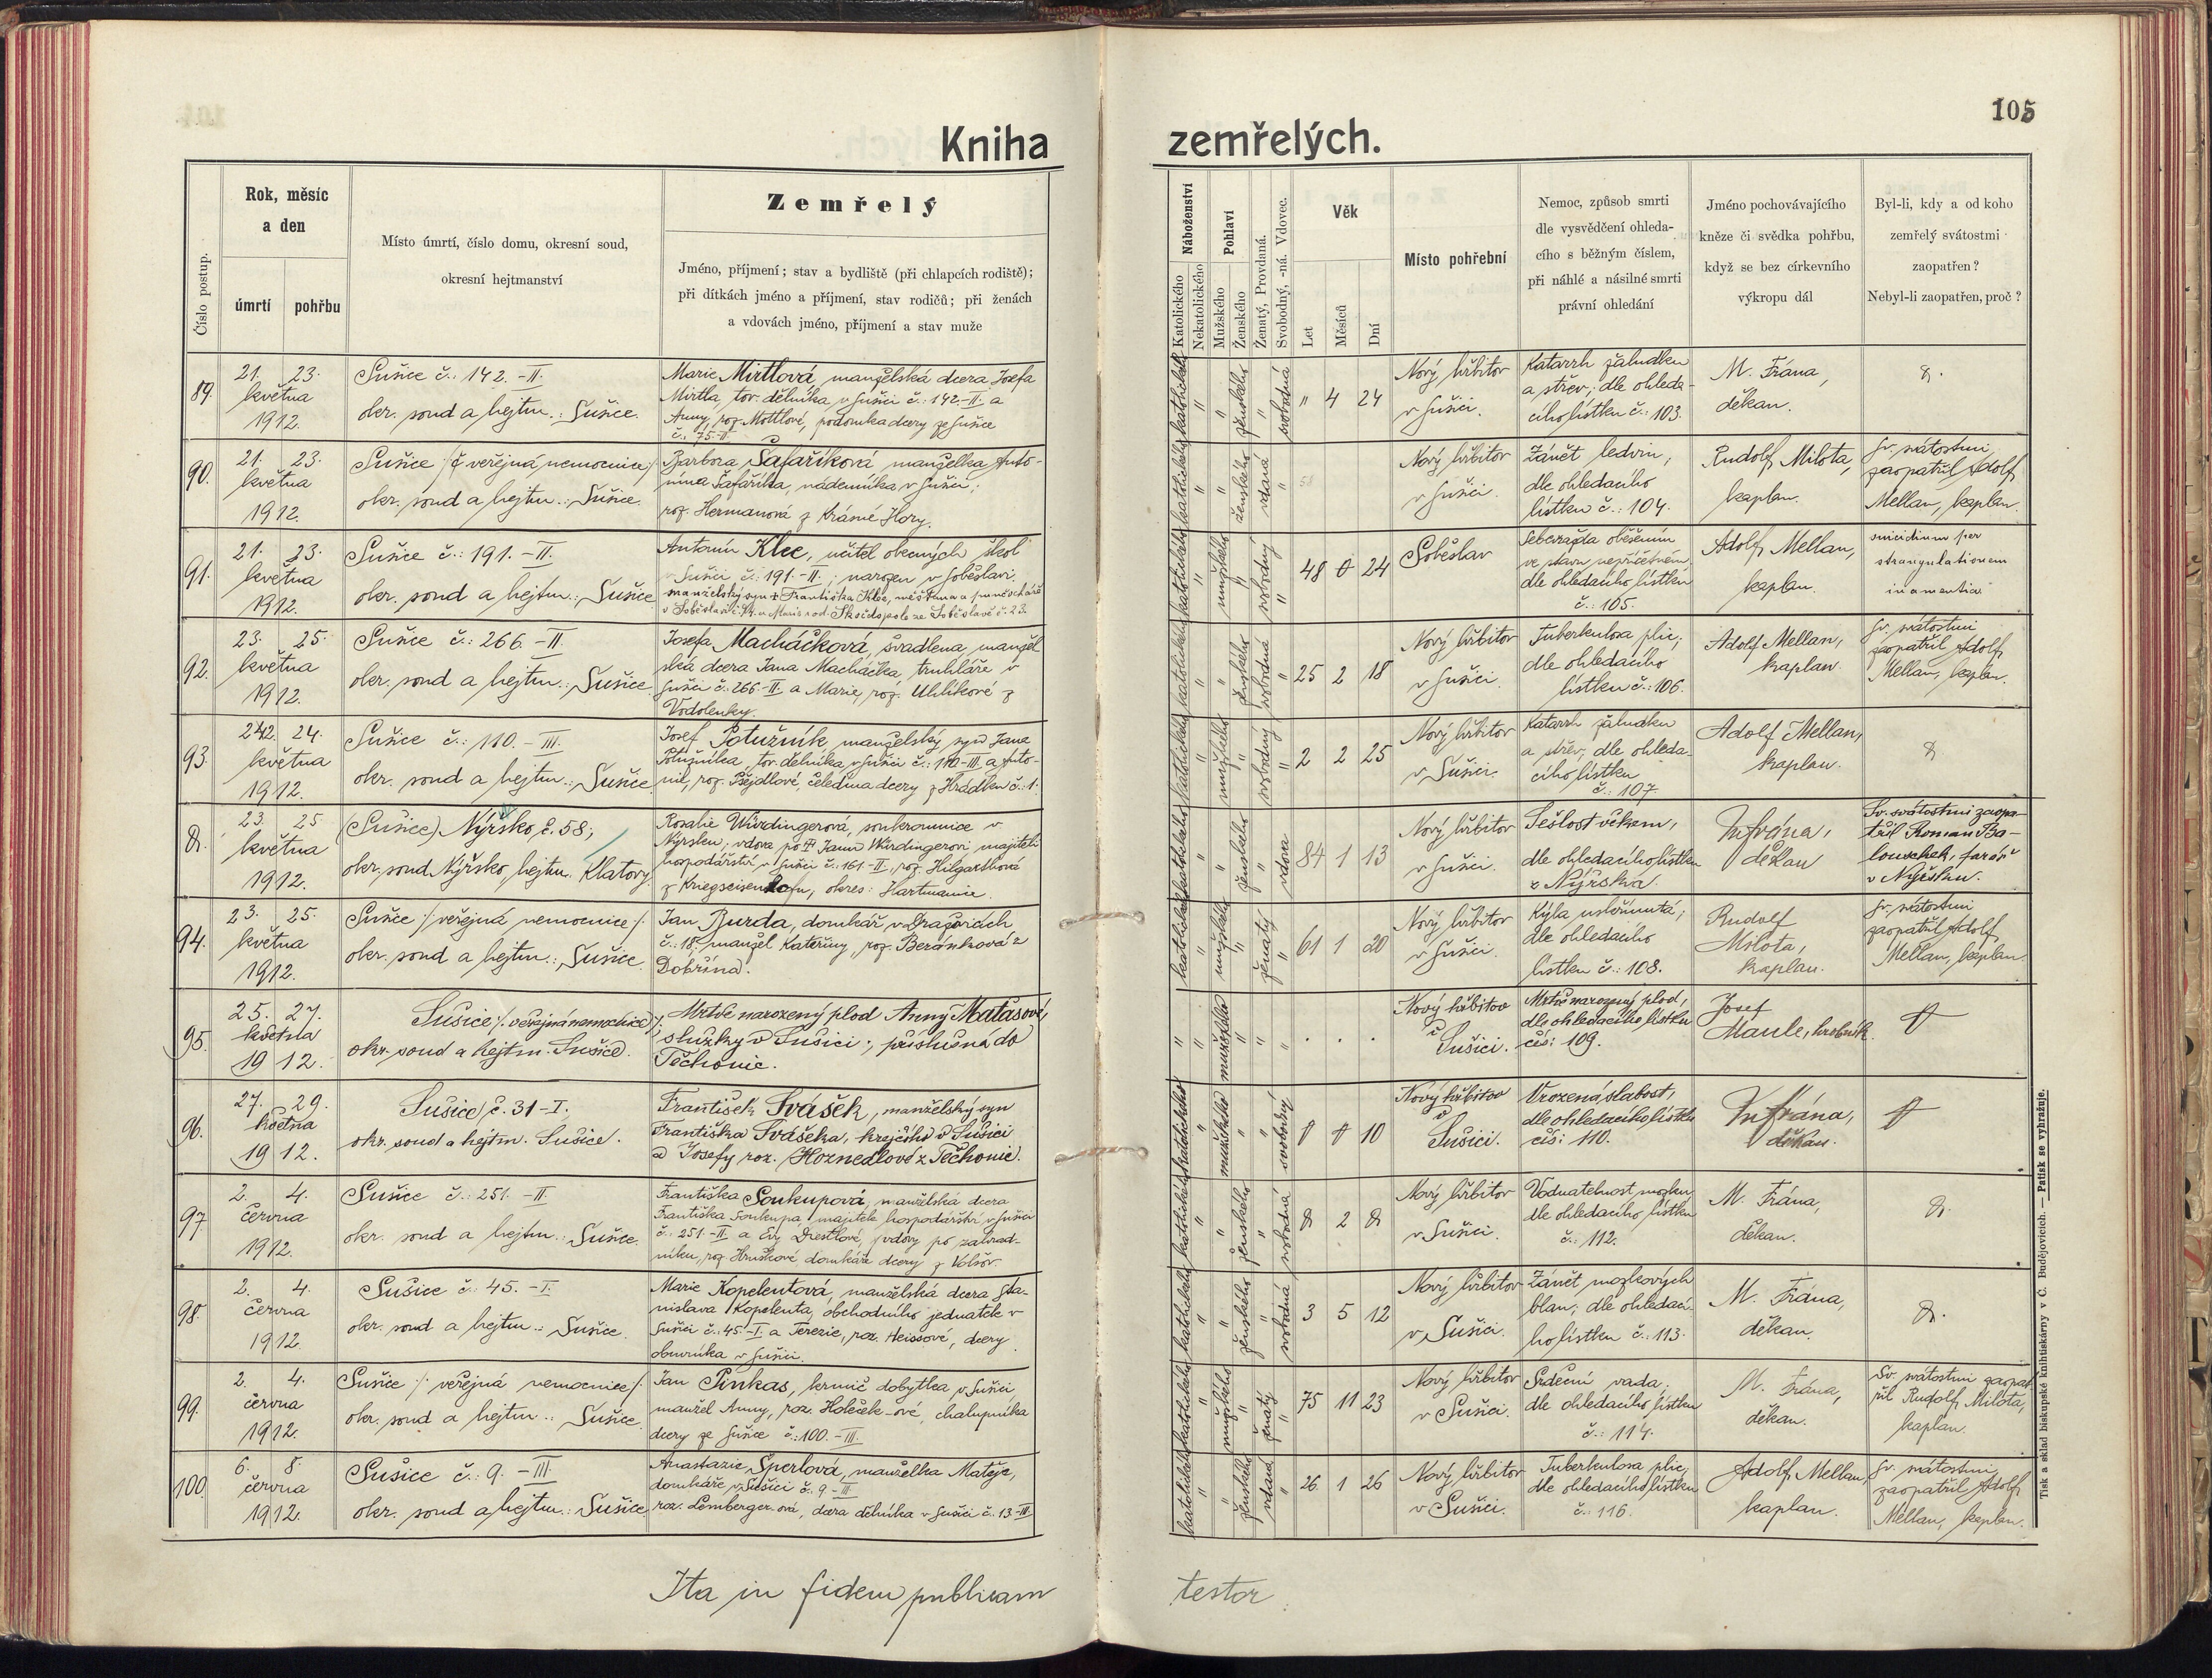 105
Kniha zemřelých.
Číslo postup.
Rok, měsíc
a den
úmrtí
pohřbu
Místo úmrtí, číslo domu, okresní soud,
okresní hejtmanství
Zemřelý
Jméno, příjmení; stav a bydliště (při chlapcích rodiště);
při dítkách jméno a příjmení, stav rodičů; při ženách
a vdovách jméno, příjmení a stav muže
Náboženství
Katolického
Nekatolického
Pohlaví
Mužského
Ženského
Ženatý, Provdaná.
Svobodný, -ná. Vdovec.
Věk
Let
Měsíců
Dní
Místo pohřební
Nemoc, způsob smrti
dle vysvědčení ohleda-
cího s běžným číslem,
při náhlé a násilné smrti
právní ohledání
Jméno pochovávajícího
kněze či svědka pohřbu,
když se bez církevního
výkropu dál
Byl-li, kdy a od koho
zemřelý svátostmi
zaopatřen?
Nebyl-li zaopatřen, proč?
89.
21. 23.
května
1912.
Sušice č.: 142.-II.
okr. soud a hejtm.: Sušice.
Marie Mirtlová, manželská dcera Josefa
Mirtla, tov. dělníka v Sušici č.: 142.-II. a
Anny, roz. Mottlové, podomka dcery ze Sušice
č. 75.-II.
katolického
"
"
ženského
"
svobodná
" 4 24
Nový hřbitov
v Sušici.
Katarrh žaludku
a střev; dle ohleda-
cího lístku č.: 103.
M. Frána,
děkan.
90.
21. 23.
května
1912.
Sušice /: veřejná nemocnice :/
okr. soud a hejtm.: Sušice.
Barbora Šafaříková manželka Anto-
nína Šafaříka, nádenníka v Sušici;
roz. Hermanová z Krásné Hory.
katolického
"
"
ženského
vdaná
"
58
Nový hřbitov
v Sušici.
Zánět ledvin,
dle ohledacího
lístku č.: 104.
Rudolf Milota,
kaplan.
Sv. svátostmi
zaopatřil Adolf
Mellan, kaplan.
91.
21. 23.
května
1912.
Sušice č.: 191.-II.
okr. soud a hejtm.: Sušice
Antonín Klec, učitel obecných škol
v Sušici č.: 191.-II.; narozen v Soběslavi.
katolického
"
mužského
"
svobodný
"
48 0 24
Soběslav
Sebevražda oběšením
ve stavu nepříčetném
dle ohledacího lístku
č.: 105.
Adolf Mellan,
kaplan.
suicidium per
strangulationem
in amentia
92.
23. 25.
května
1912.
Sušice č.: 266.-II.
okr. soud a hejtm.: Sušice.
Josefa Macháčková, švadlena, manžel
ská dcera Jana Macháčka, truhláře v
Sušici č.: 266.-II. a Marie, roz. Uhlíkové z
Vodolenky.
katolického
"
"
ženského
svobodná
"
25 2 18
Nový hřbitov
v Sušici.
Tuberkulosa plic;
dle ohledacího
lístku č.: 106.
Adolf Mellan,
kaplan.
Sv. svátostmi
zaopatřil Adolf
Mellan, kaplan.
93.
242. 24.
května
1912.
Sušice č.: 110.-III.
okr. soud a hejtm.: Sušice.
Josef Potužník manželský syn Jana
Potužníka, tov. dělníka v Sušici č.: 110-III. a Anto-
nie, roz. Pejdlové, čeledína dcery z Hrádku č.: 1.
katolického
"
mužského
"
svobodný
"
2 2 25
Nový hřbitov
v Sušici.
Katarrh žaludku
a střev; dle ohleda-
cího lístku
č.: 107.
Adolf Mellan,
kaplan.
23. 25
května
1912.
(Sušice) Nýrsko, č. 58;
okr. soud Nýrsko, hejtm. Klatovy.
Rosalie Würdingerová, soukromnice v
Nýrsku; vdova po † Janu Würdingerovi majiteli
hospodářství v Sušici č.: 161-II., roz. Hilgarthová
okres: Hartmanice.
katolického
"
"
ženského
"
vdova
84 1 13
Nový hřbitov
v Sušici.
Sešlost věkem,
dle ohledacího lístku
z Nýrska.
M. Frána,
děkan
Sv. svátostmi zaopa-
třil Roman Ba-
louschek, farář
v Nýrsku.
94.
23. 25.
května
1912.
Sušice /: veřejná nemocnice :/
okr. soud a hejtm.: Sušice.
Jan Burda, domkář v Dražovicích
č.: 18, manžel Kateřiny, roz. Beránková z
Dobřína.
katolického
"
mužského
"
ženatý
"
61 1 20
Nový hřbitov
v Sušici.
Kýla uskřinutá;
dle ohledacího
lístku č.: 108.
Rudolf
Milota,
kaplan.
Sv. svátostmi
zaopatřil Adolf
Mellan, kaplan.
95.
25. 27.
května
1912.
Sušice /: veřejná nemocnice :/
okr. soud a hejtm. Sušice.
Mrtvě narozený plod Anny Matasové,
služky v Sušici; příslušná do
Těchonic.
"
"
mužského
"
"
"
. . .
Nový hřbitov
v
Sušici.
Mrtvě narozený plod,
dle ohledacího lístku
čís: 109.
Josef
Maule, hrobník.
96.
27. 29.
května
1912.
Sušice, č. 31-I.
okr. soud a hejtm. Sušice.
František Svášek, manželský syn
Františka Sváška, krejčího v Sušici
a Josefy roz. Hoznedlové z Těchonic.
katolického
"
mužského
"
"
svobodný
10
Nový hřbitov
v
Sušici.
Vrozená slabost,
dle ohledacího lístku
čís: 110.
M. Frána,
děkan.
97.
2. 4.
června
1912.
Sušice č.: 251.-II
okr. soud a hejtm.: Sušice.
Františka Soukupová, manželská dcera
Františka Soukupa majitele hospodářství v Sušici
č.: 251.-II. a Evy Drestlové, vdovy po zahrad-
níku, roz. Hruškové domkáře dcery z Volšov.
katolického
"
"
ženského
"
svobodná
2
Nový hřbitov
v Sušici.
Vodnatelnost mozku,
dle ohledacího lístku
č.: 112.
M. Frána,
děkan.
98.
2. 4.
června
1912.
Sušice č. 45.-I.
okr. soud a hejtm.: Sušice.
Marie Kopelentová, manželská dcera Sta-
nislava Kopelenta, obchodního jednatele v
Sušici č.: 45.-I. a Terezie, roz. Heissové, dcery
obuvníka v Sušici.
katolického
"
"
ženského
"
svobodná
3 5 12
Nový hřbitov
v Sušici.
Zánět mozkových
blan; dle ohledací-
ho lístku č.: 113.
M. Frána,
děkan.
99.
2. 4.
června
1912.
Sušice /: veřejná nemocnice :/
okr. soud a hejtm.: Sušice
Jan Pinkas, krmič dobytka v Sušici,
manžel Anny, roz. Holeček-ové, chalupníka
dcery ze Sušice č.: 100.-III.
katolického
"
mužského
"
ženatý
"
75 11 23
Nový hřbitov
v Sušici.
Srdeční vada;
dle ohledacího lístku
č.: 114.
M. Frána,
děkan.
Sv. svátostmi zaopat
řil Rudolf Milota,
kaplan.
100.
6. 8.
června
1912.
Sušice č.: 9.-III.
okr. soud a hejtm.: Sušice,
Anastazie Šperlová, manželka Matěje,
domkáře, v Sušici č. 9-III.
roz. Lemberger-ová, dcera dělníka v Sušici č. 13-III.
katolického
"
"
ženského
vdaná
"
26 1 26
Nový hřbitov
v Sušici.
Tuberkulosa plic,
dle ohledacího lístku
č.: 116.
Adolf Mellan,
kaplan.
Sv. svátostmi
zaopatřil Adolf
Mellan, kaplan.
Ita in fidem publicam testor
Tisk a sklad biskupské knihtiskárny v Č. Budějovicích. — Patisk se vyhražuje.